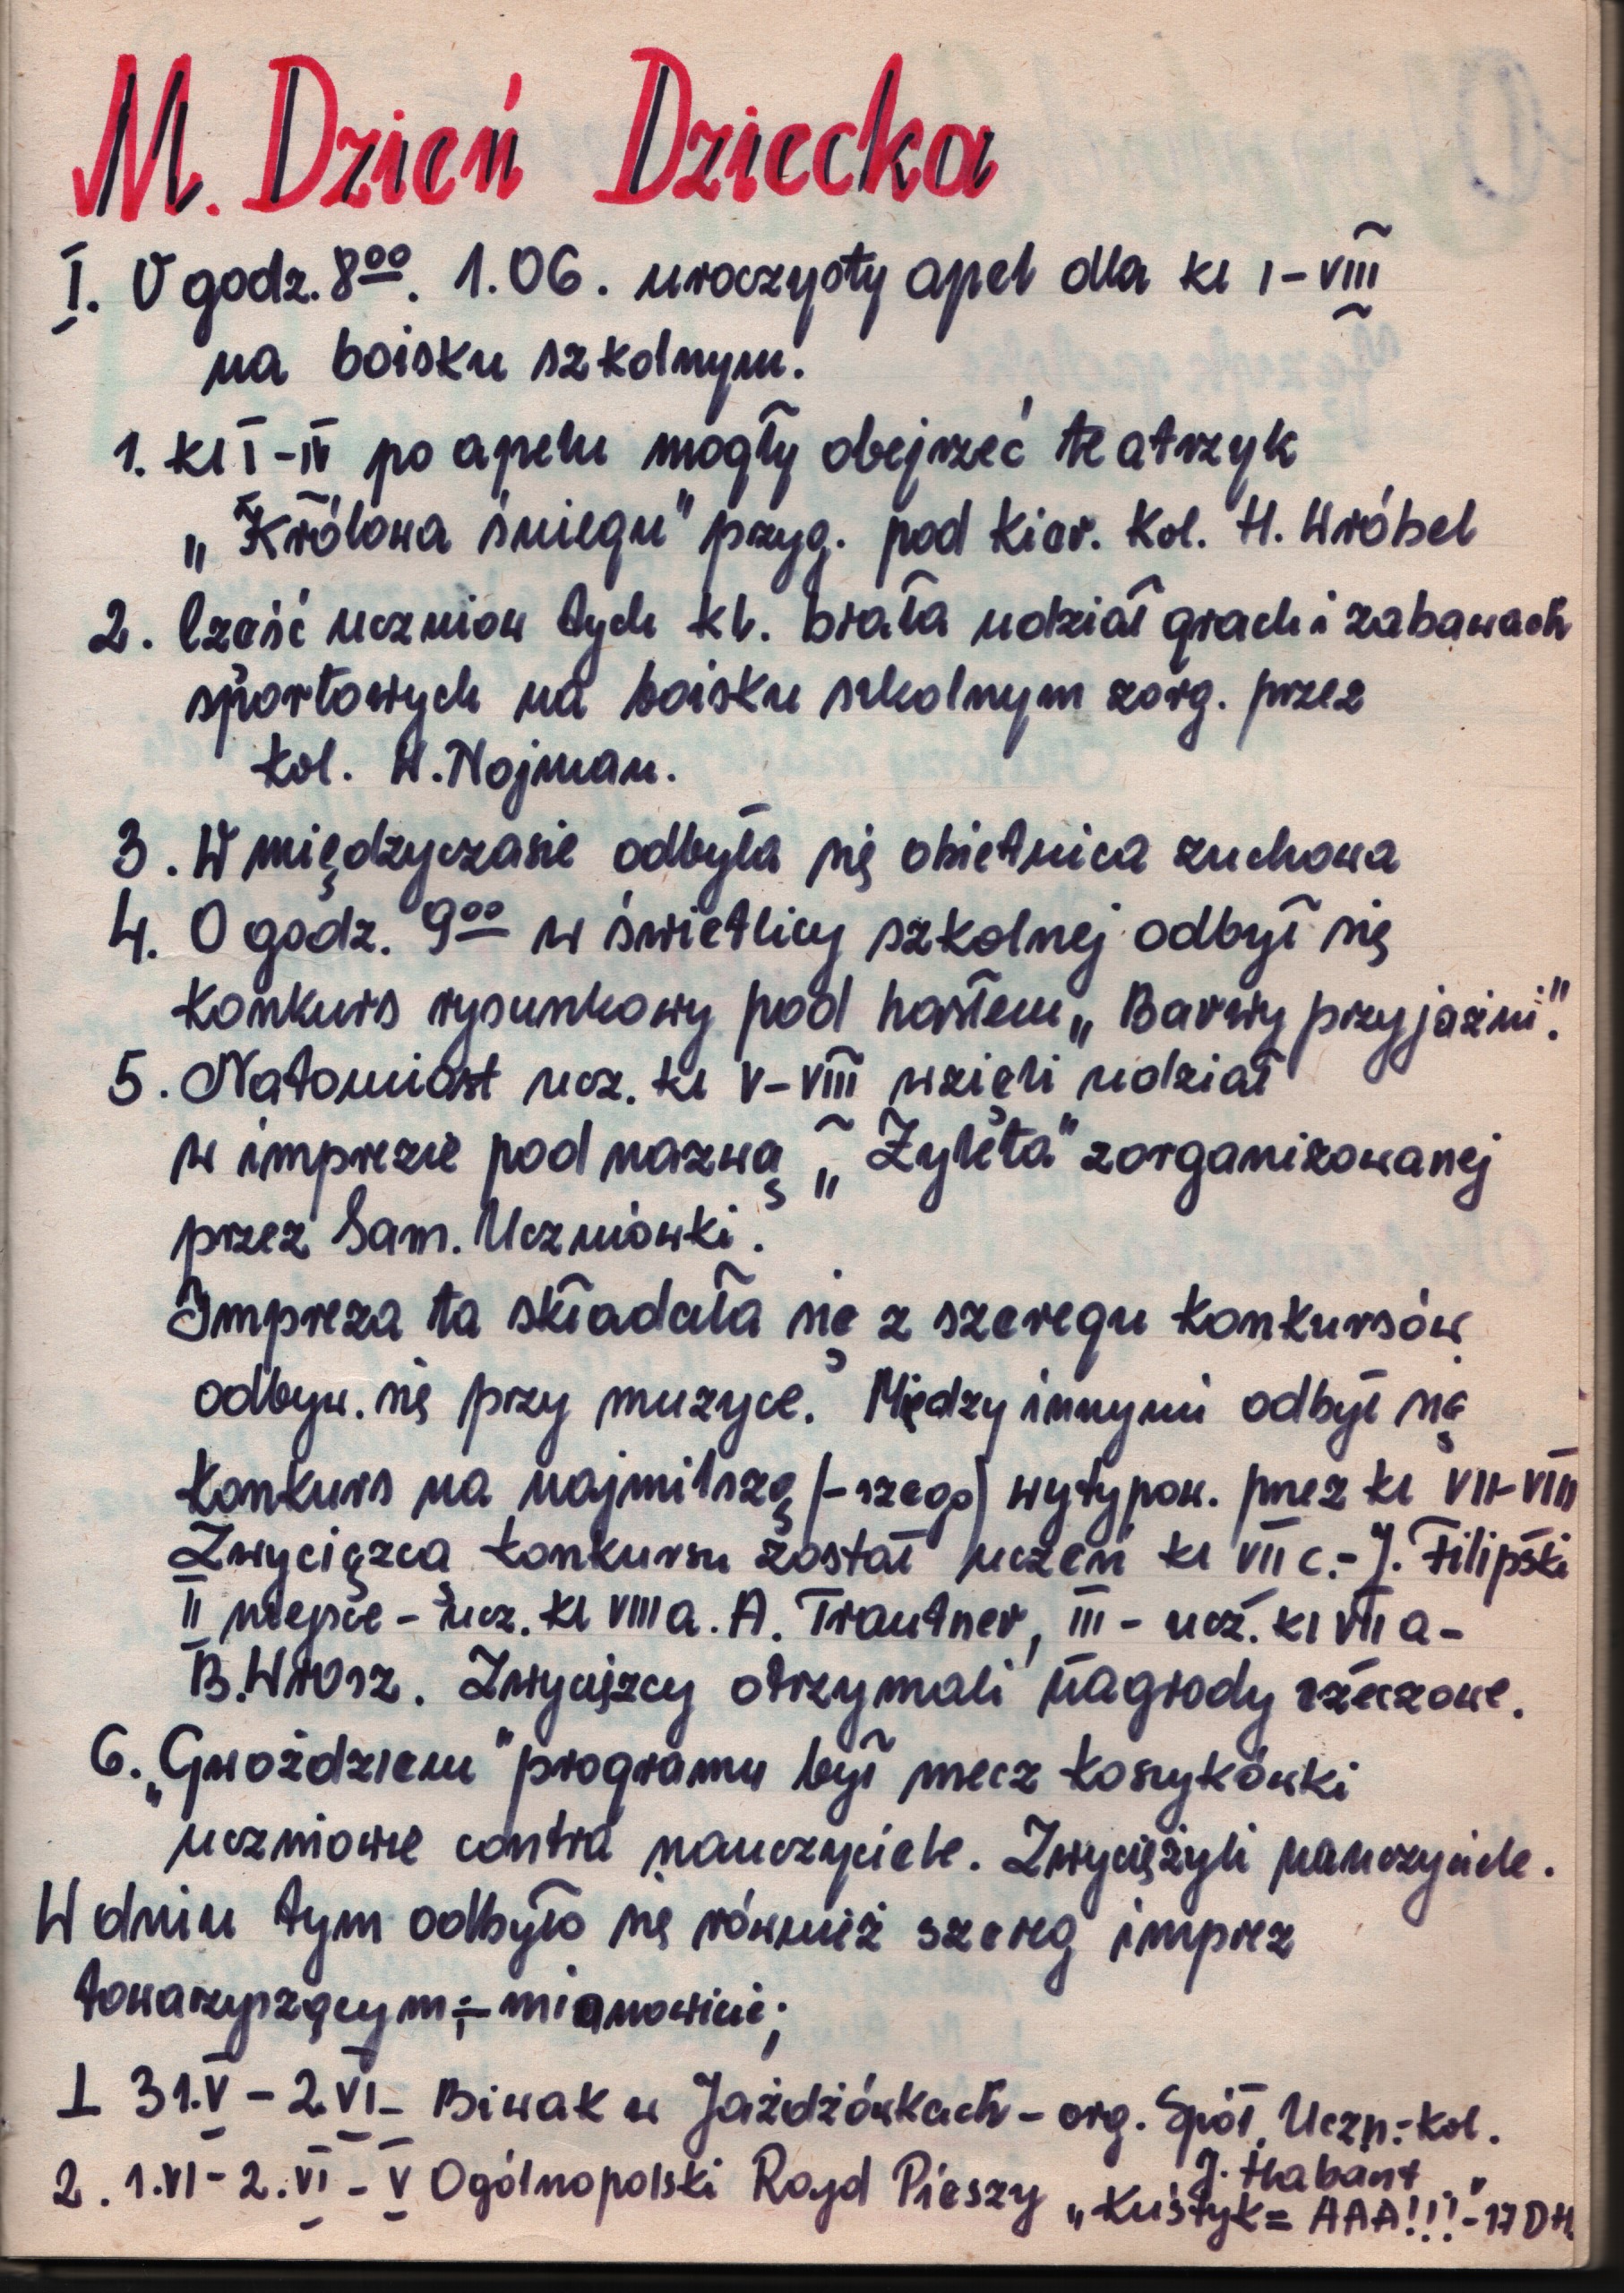 M. Dzień Dziecka
I. O godz. 8⁰⁰. 1.06. uroczysty apel dla kl I-VIII
na boisku szkolnym.
1. kl I-IV po apelu mogły obejrzeć teatrzyk
„Królowa śniegu" przyg. pod kier. kol. H. Wróbel
2. Część uczniów tych kl. brała udział grach i zabawach
sportowych na boisku szkolnym zorg. przez
kol. W. Nojman.
3. W międzyczasie odbyła się obietnica zuchowa
4. O godz. 9⁰⁰ w świetlicy szkolnej odbył się
konkurs rysunkowy pod hasłem „Barwy przyjaźni".
5. Natomiast ucz. kl V-VIII wzięli udział
w imprezie pod nazwą „Żyleta" zorganizowanej
przez Sam. Uczniowki.
Impreza ta składała się z szeregu konkursów
odbyw. się przy muzyce. Między innymi odbył się
konkurs na najmilszą (-szego) wytypow. przez kl VII-VIII
Zwycięzcą konkursu został uczeń kl VII c.- J. Filipski
II miejsce - ucz. kl VIII a. A. Trautner, III - ucz. kl VII a-
B. Wrosz. Zwycięzcy otrzymali nagrody rzeczowe.
6. „Gwoździem" programu był mecz koszykówki
uczniowie contra nauczyciele. Zwyciężyli nauczyciele.
W dniu tym odbyło się również szereg imprez
towarzyszącym; - mianowicie;
1 31.V - 2.VI - Biwak w Jażdżówkach - org. Spół. Uczn.- kol.
J. Habant
2. 1.VI - 2.VI - V Ogólnopolski Rajd Pieszy „Kustyk = AAA!!!" - 17 DH.